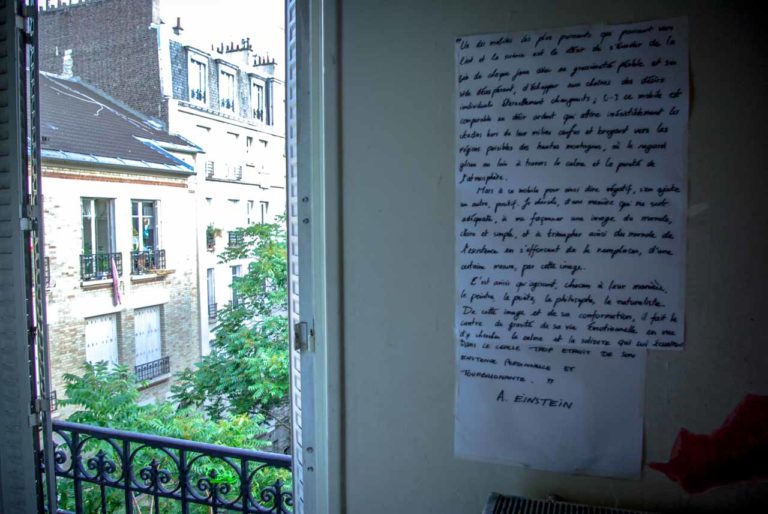 "Un des mobiles les plus puissants qui poussent vers
l'art et la science est le désir de s'évader de la
vie de chaque jour avec sa grossièreté pénible et son
vide désespérant, d'échapper aux chaînes des désirs
individuels éternellement changeants ; (...) ce mobile est
comparable au désir ardent qui attire irrésistiblement les
citadins hors de leur milieu confus et bruyant vers les
régions paisibles des hautes montagnes, où le regard
glisse au loin à travers le calme et la pureté de
l'atmosphère.
Mais à ce mobile pour ainsi dire négatif, s'en ajoute
un autre, positif. Je cherche, d'une manière qui me soit
adéquate, à me façonner une image du monde,
claire et simple, et à triompher ainsi du monde de
l'existence en s'efforçant de le remplacer, d'une
certaine mesure, par cette image.
C'est ainsi qu'agissent, chacun à leur manière,
le peintre, le poète, le philosophe, le naturaliste.
De cette image et de sa conformation, il fait le
centre de gravité de sa vie émotionnelle en vue
d'y chercher le calme et la solidité qui lui échappent
DANS LE CERCLE TROP ETROIT DE SON
EXISTENCE PERSONNELLE ET
TOURBILLONNANTE. "
A. EINSTEIN